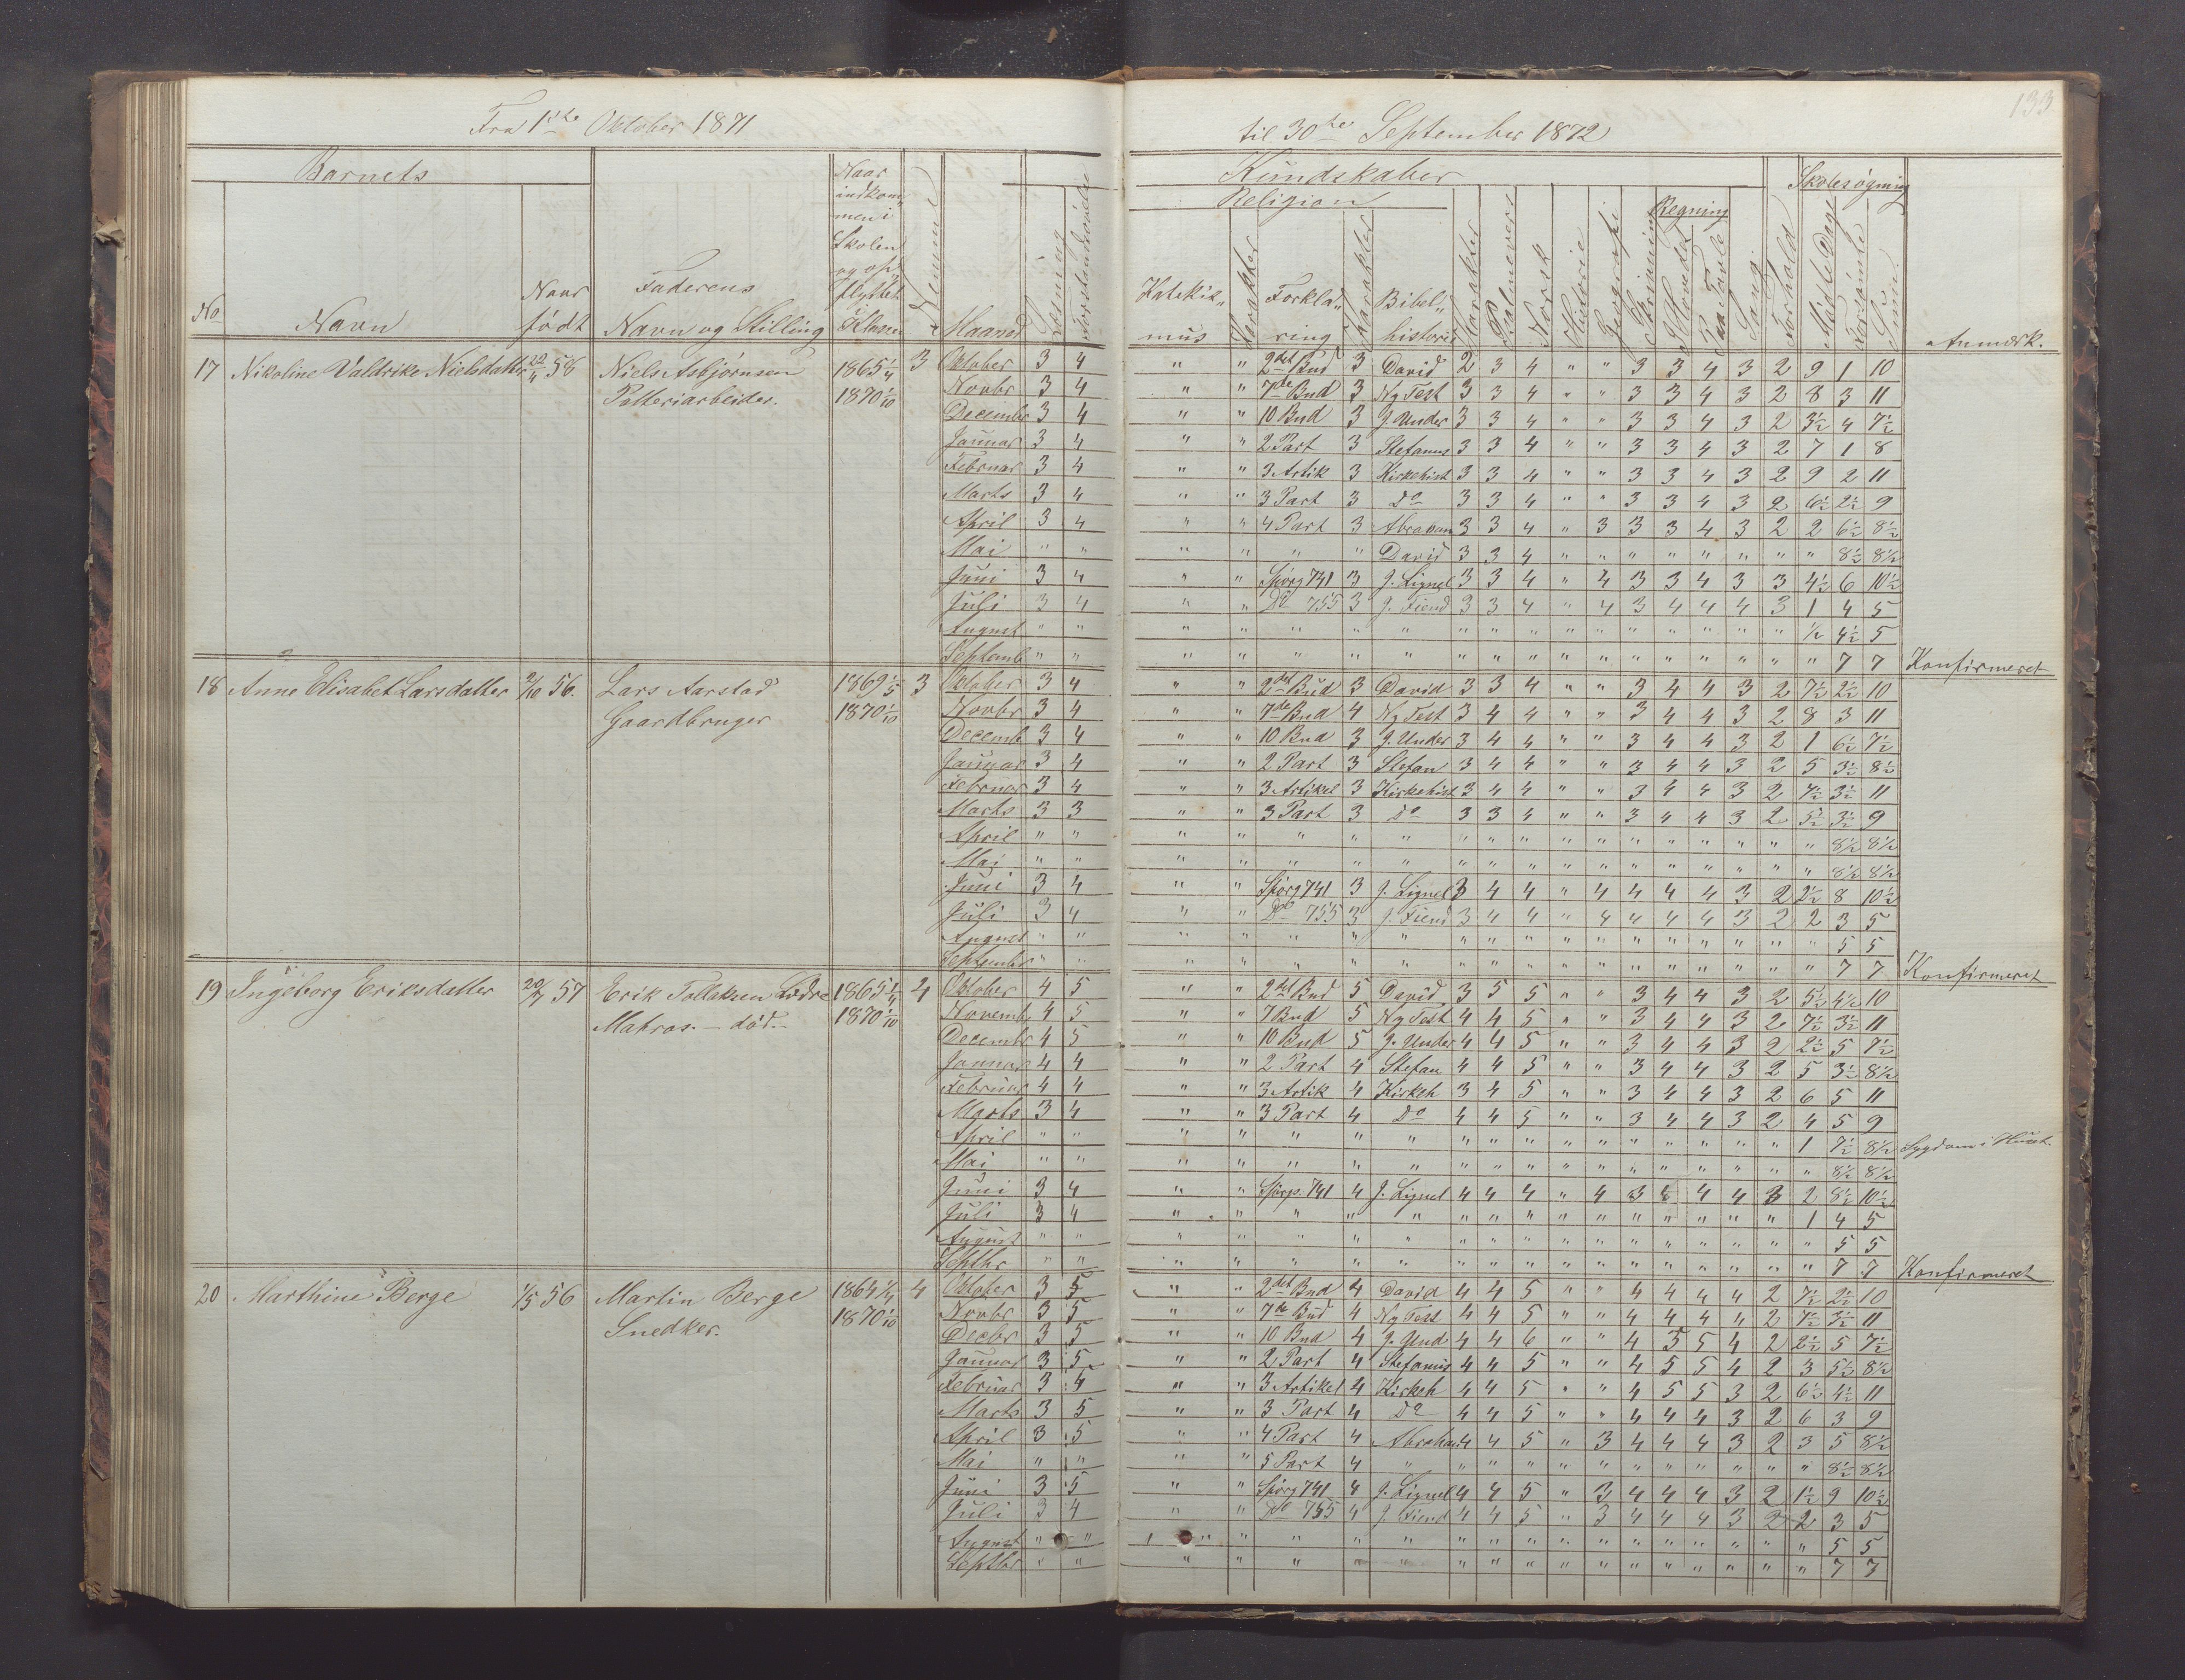 133
Fra 1ste Oktober 1871
til 30te September 1872
Barnets
No
Navn
Naar født
Faderens Navn og Stilling
Naar indkommen i Skolen og opflyttet i Klassen
Nummer
Maaned
Læsning
Forstandsøvelse
Kundskaber
Religion
Katekismus
Karakter
Forklaring
Karakter
Bibelhistorie
Karakter
Salmevers
Norsk
Historie
Geografi
Skrivning
Regning
I Hovedet
Paa Tavle
Sang
Forhold
Skolesøgning
Mødte Dage
Forsømte
Summa
Anmærk.
17 Nikoline Valdrike Nielsdatter 22/4 58 Niels Asbjørnsen 1865 1/4 3 Oktober 3 4 " " 2det Bud 3 David 2 3 4 " " 3 3 4 3 2 9 1 10
Potteriarbeider. 1870 1/10 Novbr 3 4 " " 7de Bud 3 Ny Test 3 3 4 " " 3 3 4 3 2 8 3 11
December 3 4 " " 10 Bud 3 J. Under 3 3 4 " " 3 3 4 3 2 3½ 4 7½
Januar 3 4 " " 2 Part 3 Stefanus 3 3 4 " " 3 3 4 3 2 7 1 8
Februar 3 4 " " 3 Artik 3 Kirkehist 3 3 4 " " 3 3 4 3 2 9 2 11
Marts 3 4 " " 3 Part 3 Do 3 3 4 " " 3 3 4 3 2 6½ 2½ 9
April 3 4 " " 4 Part 3 Abraham 3 3 4 " 3 3 3 4 3 2 2 6½ 8½
Mai " " " " " " David 3 3 4 " " " " " " " " 8½ 8½
Juni 3 4 " " Spørg 741 3 J. Lignel 3 3 4 " 4 3 3 4 3 3 4½ 6 10½
Juli 3 4 " " Do 755 3 J. Fiend 3 3 4 " 4 3 4 4 4 3 1 4 5
August " " " " " " " " " " " " " " " " " ½ 4½ 5
Septemb " " " " " " " " " " " " " " " " " " 7 7 Konfirmeret
18 Anne Elisabet Larsdatter 2/10 56. Lars Aarstad 1869 1/5 3 Oktober 3 4 " " 2det Bud 3 David 3 3 4 " " 3 4 4 3 2 7½ 2½ 10
Gaardbruger 1870 1/10 Novbr 3 4 " " 7de Bud 4 Ny Test 3 4 4 " " 3 4 4 3 2 8 3 11
Decemb 3 4 " " 10 Bud 3 J. Under 3 4 4 " " 3 4 4 3 2 1 6½ 7½
Januar 3 4 " " 2 Part 3 Stefan 3 4 4 " " 3 4 4 3 2 5 3½ 8½
Februar 3 4 " " 3 Artikel 3 Kirkehist 3 4 4 " " 3 4 4 3 2 7½ 3½ 11
Marts 3 3 " " 3 Part 3 Do 3 3 4 " " 3 4 4 3 2 5½ 3½ 9
April " " " " " " " " " " " " " " " " " " 8½ 8½
Mai " " " " " " " " " " " " " " " " " " 8½ 8½
Juni 3 4 " " Spørg 741 3 J. Lignel 3 4 4 " 4 4 4 4 3 2 2½ 8 10½
Juli 3 4 " " Do 755 3 J. Fiend 3 4 4 " 4 4 4 4 3 2 2 3 5
August " " " " " " " " " " " " " " " " " " 5 5
September " " " " " " " " " " " " " " " " " " 7 7 Konfirmeret
19 Ingeborg Eriksdatter 20/7 57 Erik Tollaksen 1865 1/4 4 Oktober 4 5 " " 2det Bud 5 David 3 5 5 " " 3 4 4 3 2 5½ 4½ 10
Matros. – død. – 1870 1/10 Novemb 4 5 " " 7 Bud 5 Ny Test 4 4 5 " " 3 4 4 3 2 7½ 3½ 11
Decembr 4 5 " " 10 Bud 5 J. Under 4 4 5 " " 3 4 4 3 2 2½ 5 7½
Januar 4 4 " " 2 Part 4 Stefan 4 4 5 " " 3 4 4 3 2 5 3½ 8½
Februar 4 4 " " 3 Artik 4 Kirkeh 3 4 5 " " 3 4 4 3 2 6 5 11
Marts 3 4 " " 3 Part 4 Do 4 4 5 " " 3 4 4 3 2 4 5 9
April " " " " " " " " " " " " " " " " " 1 7½ 8½ Sygdom i Huset.
Mai " " " " " " " " " " " " " " " " " " 8½ 8½
Juni 3 4 " " Spørg. 741 4 J. Lignel 4 4 4 " 4 3 4 4 4 3 2 8½ 10½
Juli 3 4 " " " " " " " " " " " " " " " 1 4 5
August " " " " " " " " " " " " " " " " " " 5 5
Septbr " " " " " " " " " " " " " " " " " " 7 7 Konfirmeret
20 Marthine Berge 1/5 56 Martin Berge 1864 1/4 4 Oktober 3 5 " " 2det Bud 4 David 4 4 5 " " 4 4 4 4 2 7½ 2½ 10
Snedker. 1870 1/10 Novbr 3 5 " " 7de Bud 4 Ny Test 4 4 5 " " 4 4 4 4 2 7½ 3½ 11
Decbr 3 5 " " 10 Bud 4 J. Und 4 4 6 " " 4 5 5 4 2 2½ 5 7½
Januar 3 5 " " 2 Part 4 Stefanus 4 4 5 " " 4 5 5 4 2 3 5½ 8½
Februar 3 4 " " 3 Artikel 4 Kirkeh 4 4 5 " " 4 5 5 3 2 6½ 4½ 11
Marts 3 5 " " 3 Part 4 Do 4 4 5 " " 4 4 4 3 2 6 3 9
April 3 5 " " 4 Part 4 Abraham 4 4 5 " 3 4 4 4 3 2 3 5 8½
Mai " " " " 5 Part 4 " " " " " " " " " " " " 8½ 8½
Juni 3 5 " " Spørg 741 4 J. Lignel 4 4 5 " 3 4 4 4 3 2 1½ 9 10½
Juli 3 4 " " Do 755 4 J. Fiend 4 4 5 " 3 4 4 4 3 2 2 3 5
August " " " " " " " " " " " " " " " " " " 5 5
Septbr " " " " " " " " " " " " " " " " " " 7 7